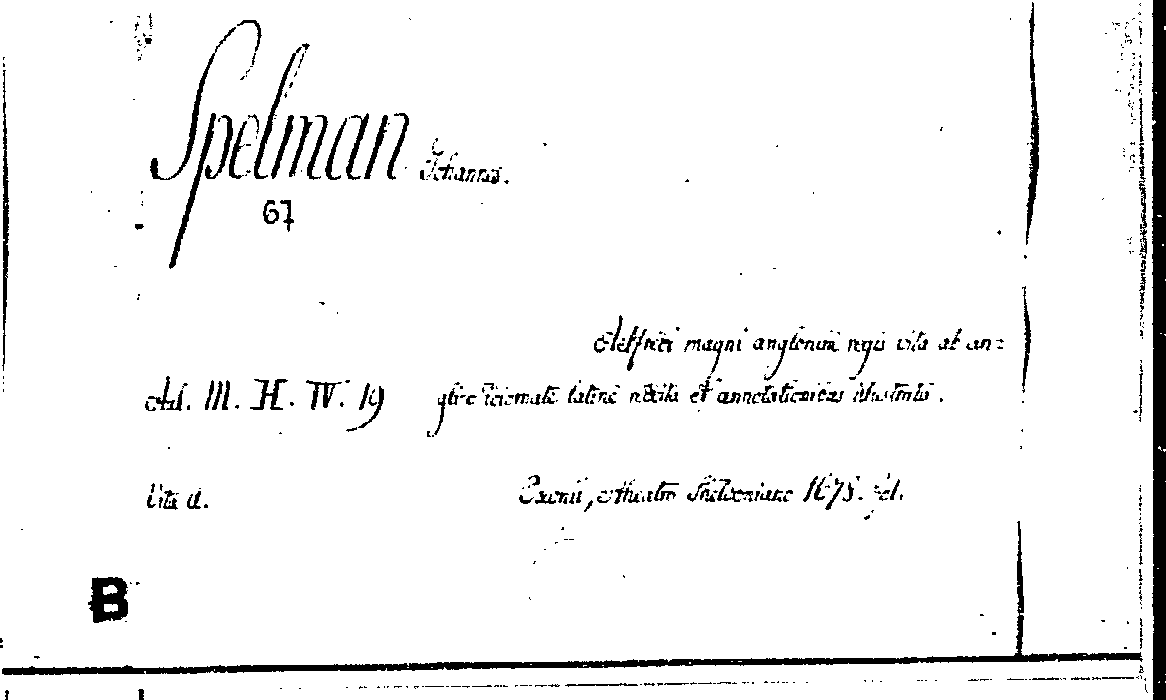 Spelman Johannes.
67
Aelfredi magni anglorum regis vita ab an=
Ad. III. H. IV. 19 glico idiomate latine reddita et annotationibus illustrata.
Vita d. Oxonii, e theatro Sheldoniano 1678. fol.
B